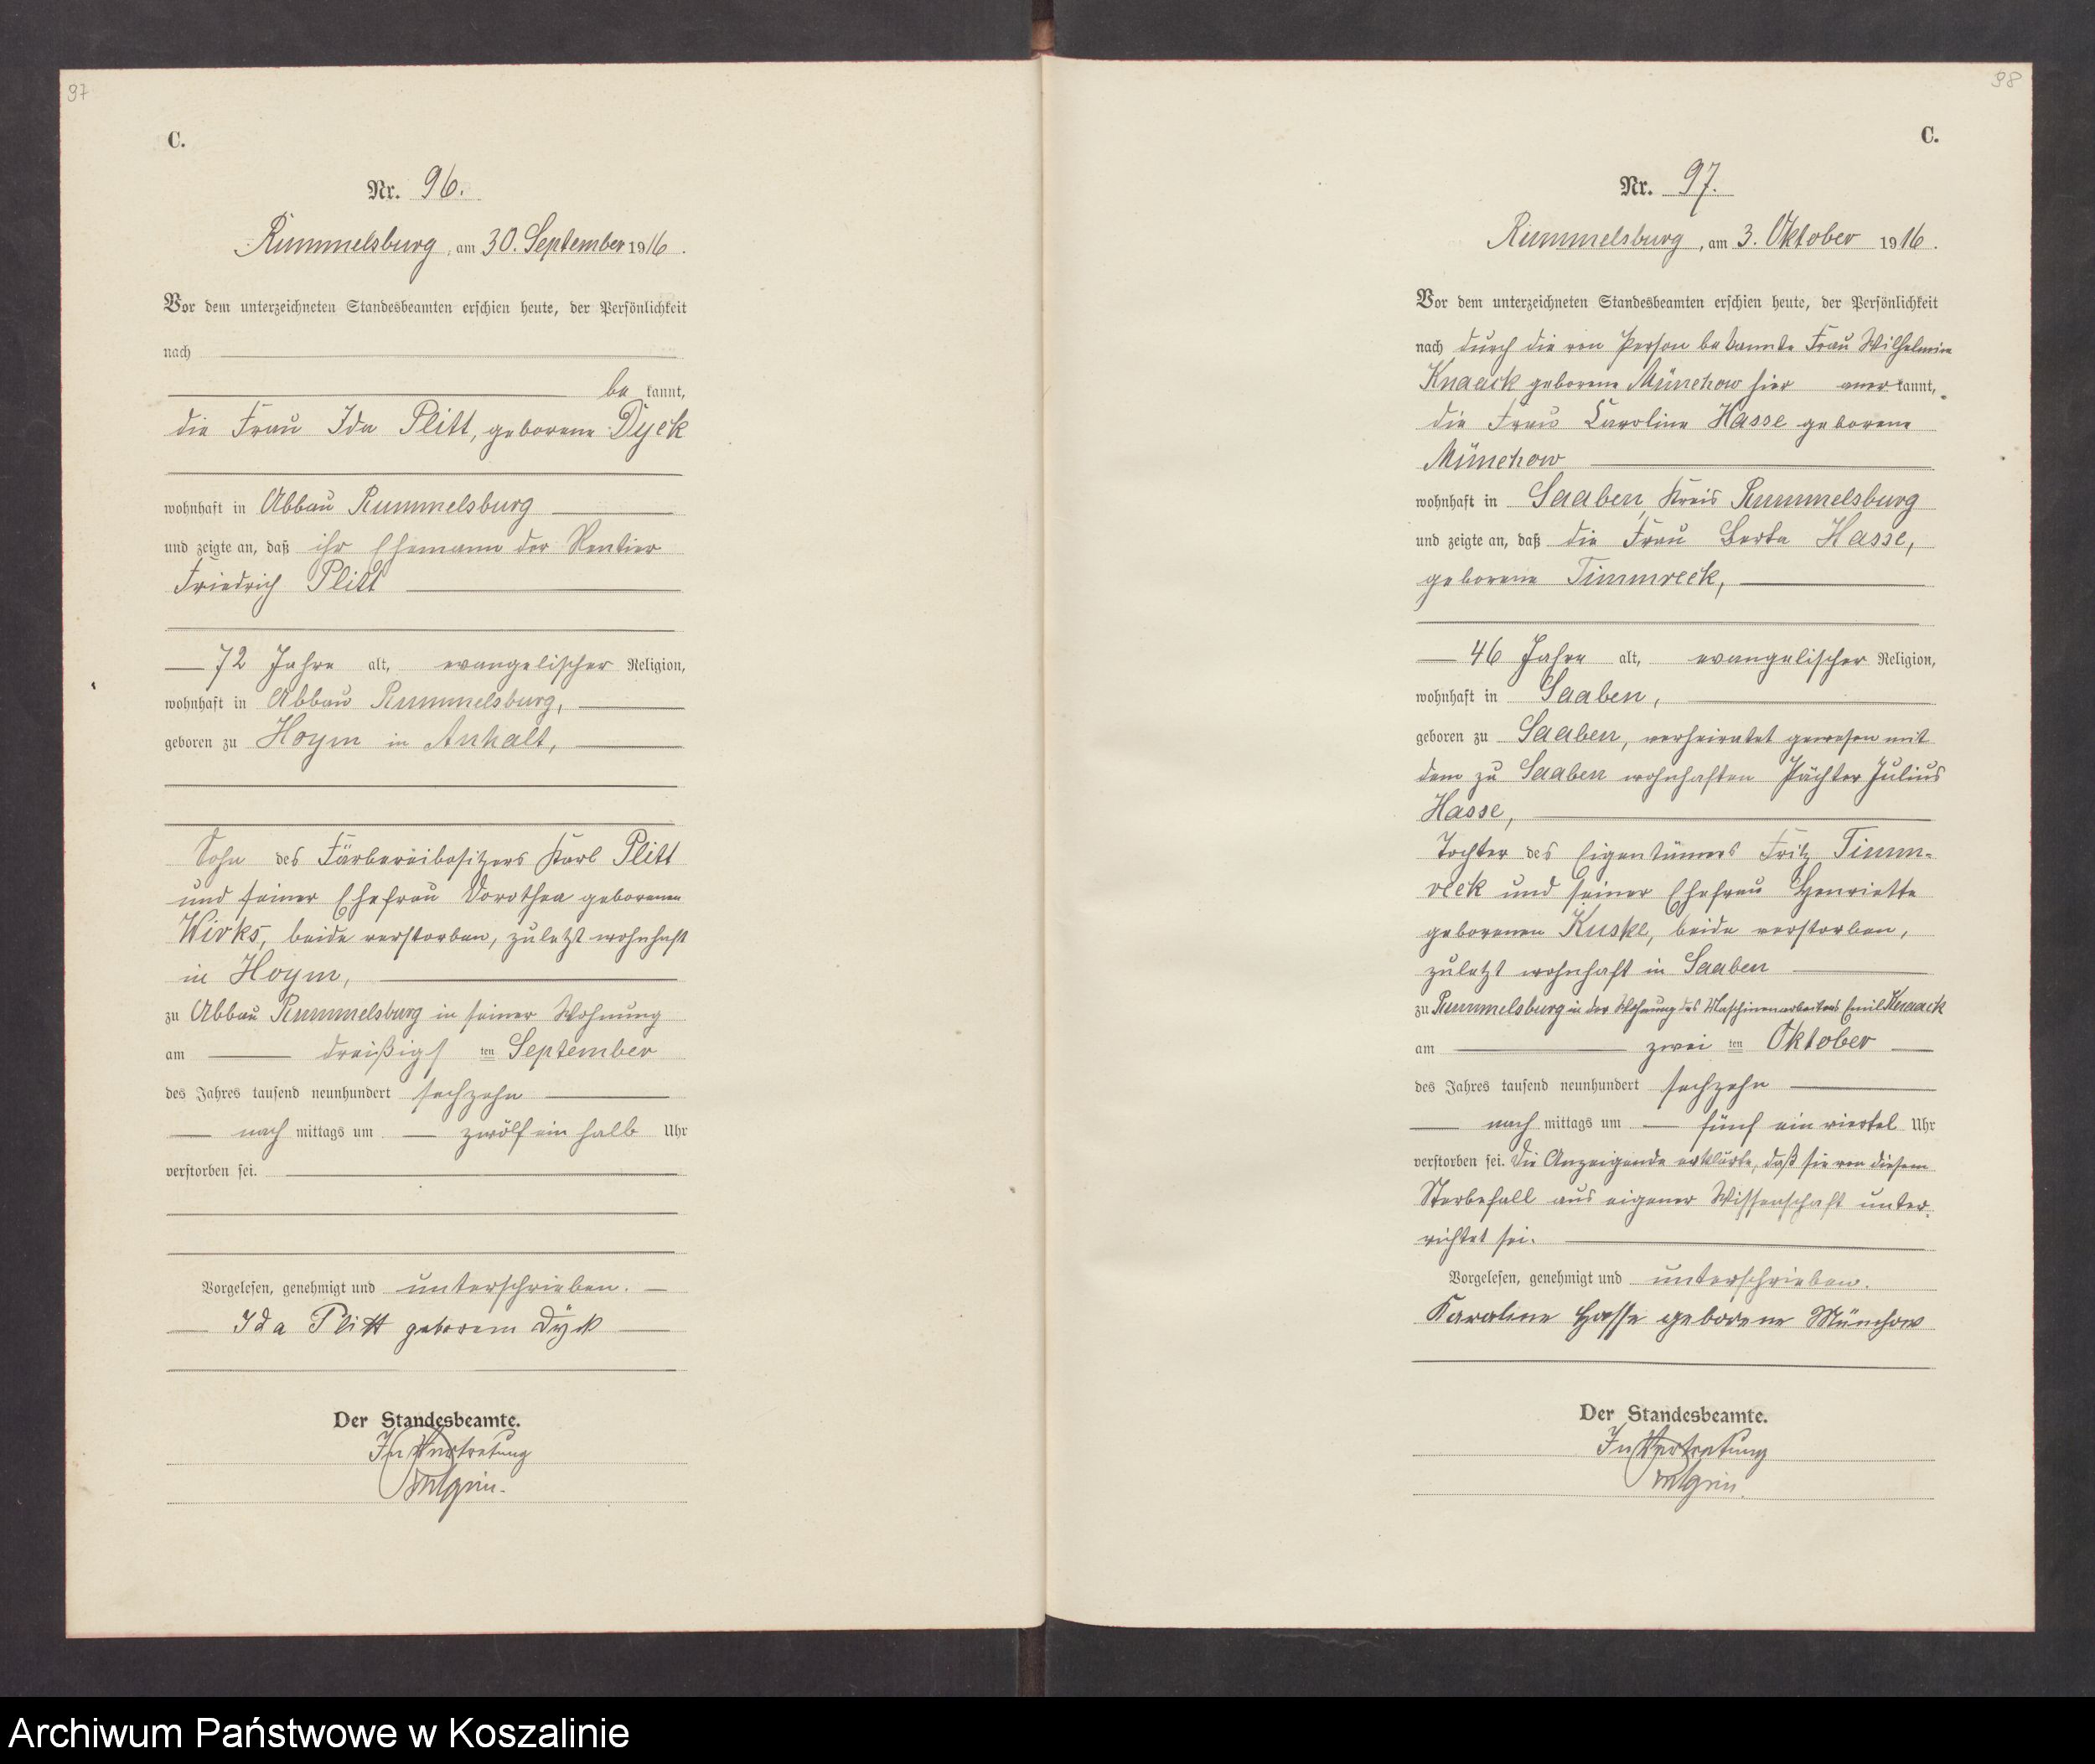 97
C.
Nr. 96.
Rummelsburg, am 30. September 1916.
Vor dem unterzeichneten Standesbeamten erschien heute, der Persönlichkeit
nach
be kannt,
die Frau Ida Plitt, geborene Dyck
wohnhaft in Abbau Rummelsburg
und zeigte an, daß ihr Ehemann der Rentier
Friedrich Plitt
72 Jahre alt, evangelischer Religion,
wohnhaft in Abbau Rummelsburg,
geboren zu Hoym in Anhalt,
Sohn des Färbereibesitzers Karl Plitt
und seiner Ehefrau Dorothea geborenen
Wirks, beide verstorben, zuletzt wohnhaft
in Hoym,
zu Abbau Rummelsburg in seiner Wohnung
am dreißigs ten September
des Jahres tausend neunhundert sechzehn
nach mittags um zwölf ein halb Uhr
verstorben sei.
Vorgelesen, genehmigt und unterschrieben.
Ida Plitt geborem Dyk
Der Standesbeamte.
In Vertretung
98
C.
Nr. 97.
Rummelsburg, am 3. Oktober 1916.
Vor dem unterzeichneten Standesbeamten erschien heute, der Persönlichkeit
nach durch die von Person bekannte Frau Wilhelmine
Knaack geborene Münchow hier aner kannt,
die Frau Karoline Hasse geborene
Münchow
wohnhaft in Saaben, Kreis Rummelsburg
und zeigte an, daß die Frau Berta Hasse,
geborene Timmreck,
46 Jahre alt, evangelischer Religion,
wohnhaft in Saaben,
geboren zu Saaben, verheiratet gewesen mit
dem zu Saaben wohnhaften Pächter Julius
Hasse,
Tochter des Eigentümers Fritz Timm-
reck und seiner Ehefrau Henriette
geborenen Kuske, beide verstorben,
zuletzt wohnhaft in Saaben
zu Rummelsburg in der Wohnung des Maschinenarbeiters Emil Knaack
am zwei ten Oktober
des Jahres tausend neunhundert sechzehn
nach mittags um fünf ein viertel Uhr
verstorben sei. Die Anzeigende erklärte, daß sie von diesem
Sterbefall aus eigener Wissenschaft unter-
richtet sei.
Vorgelesen, genehmigt und unterschrieben.
Karoline Hasse geborene Münchow
Der Standesbeamte.
In Vertretung
Archiwum Państwowe w Koszalinie